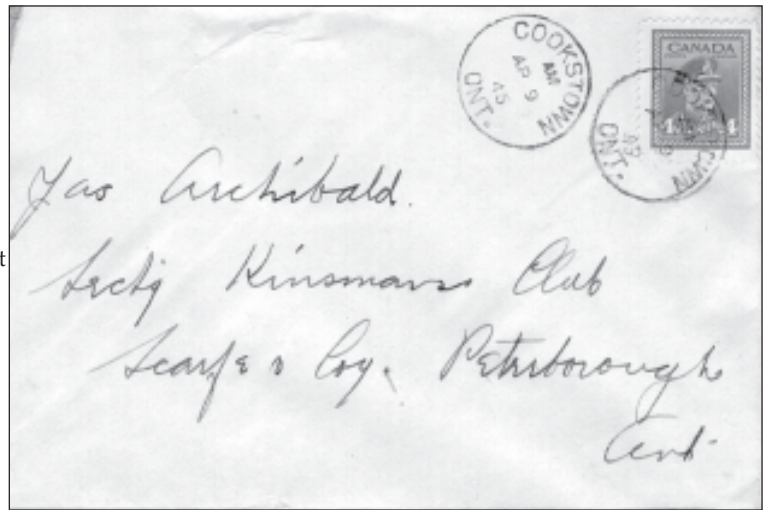 COOKSTOWN
AM
AP 9
45
ONT.
CANADA
4 4
WN
45
ONT.
Jas Archibald.
t
Secty Kinsmans Club
Scarfe & Coy. Peterborough
Ont